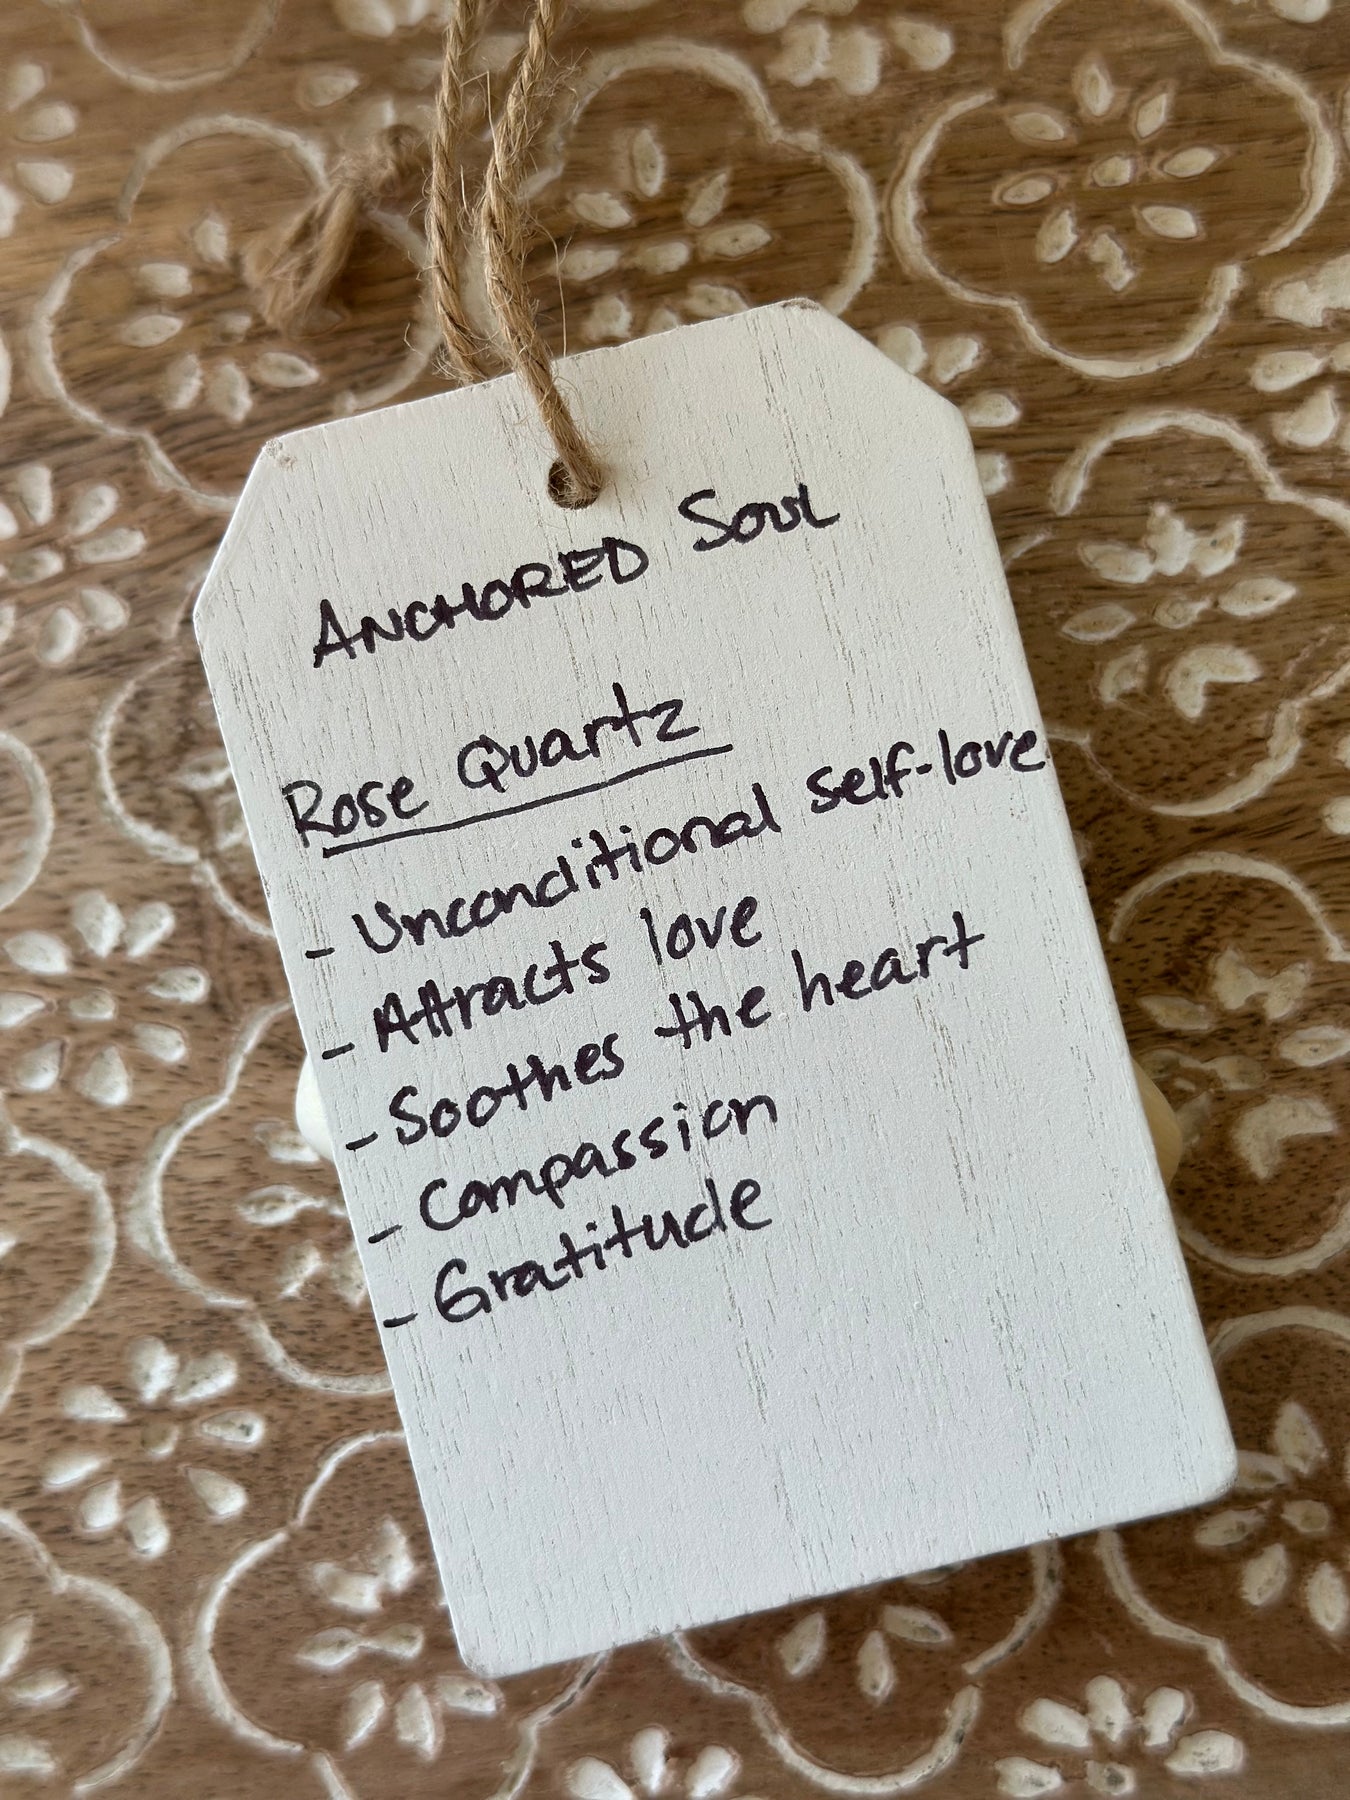 ANCHORED SOUL
Rose Quartz
- Unconditional self-love
- Attracts love
- Soothes the heart
- Compassion
- Gratitude